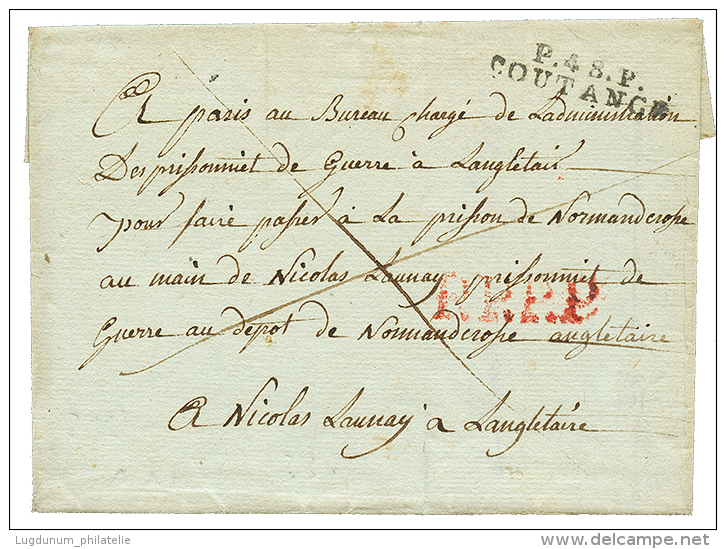 P.48.P.
COUTANCE
A paris au Bureau Chargé de Ladministration
Des prisonniet de Guerre à Langletair
pour faire passer à La prison de Normancrosse
au main de Nicolas Launay prisonniet de
Guerre au depot de Normancrosse angletaire
P.P.P.P
A Nicolas Launay a Langletaire
Lugdunum_philatelie
delcampe.net